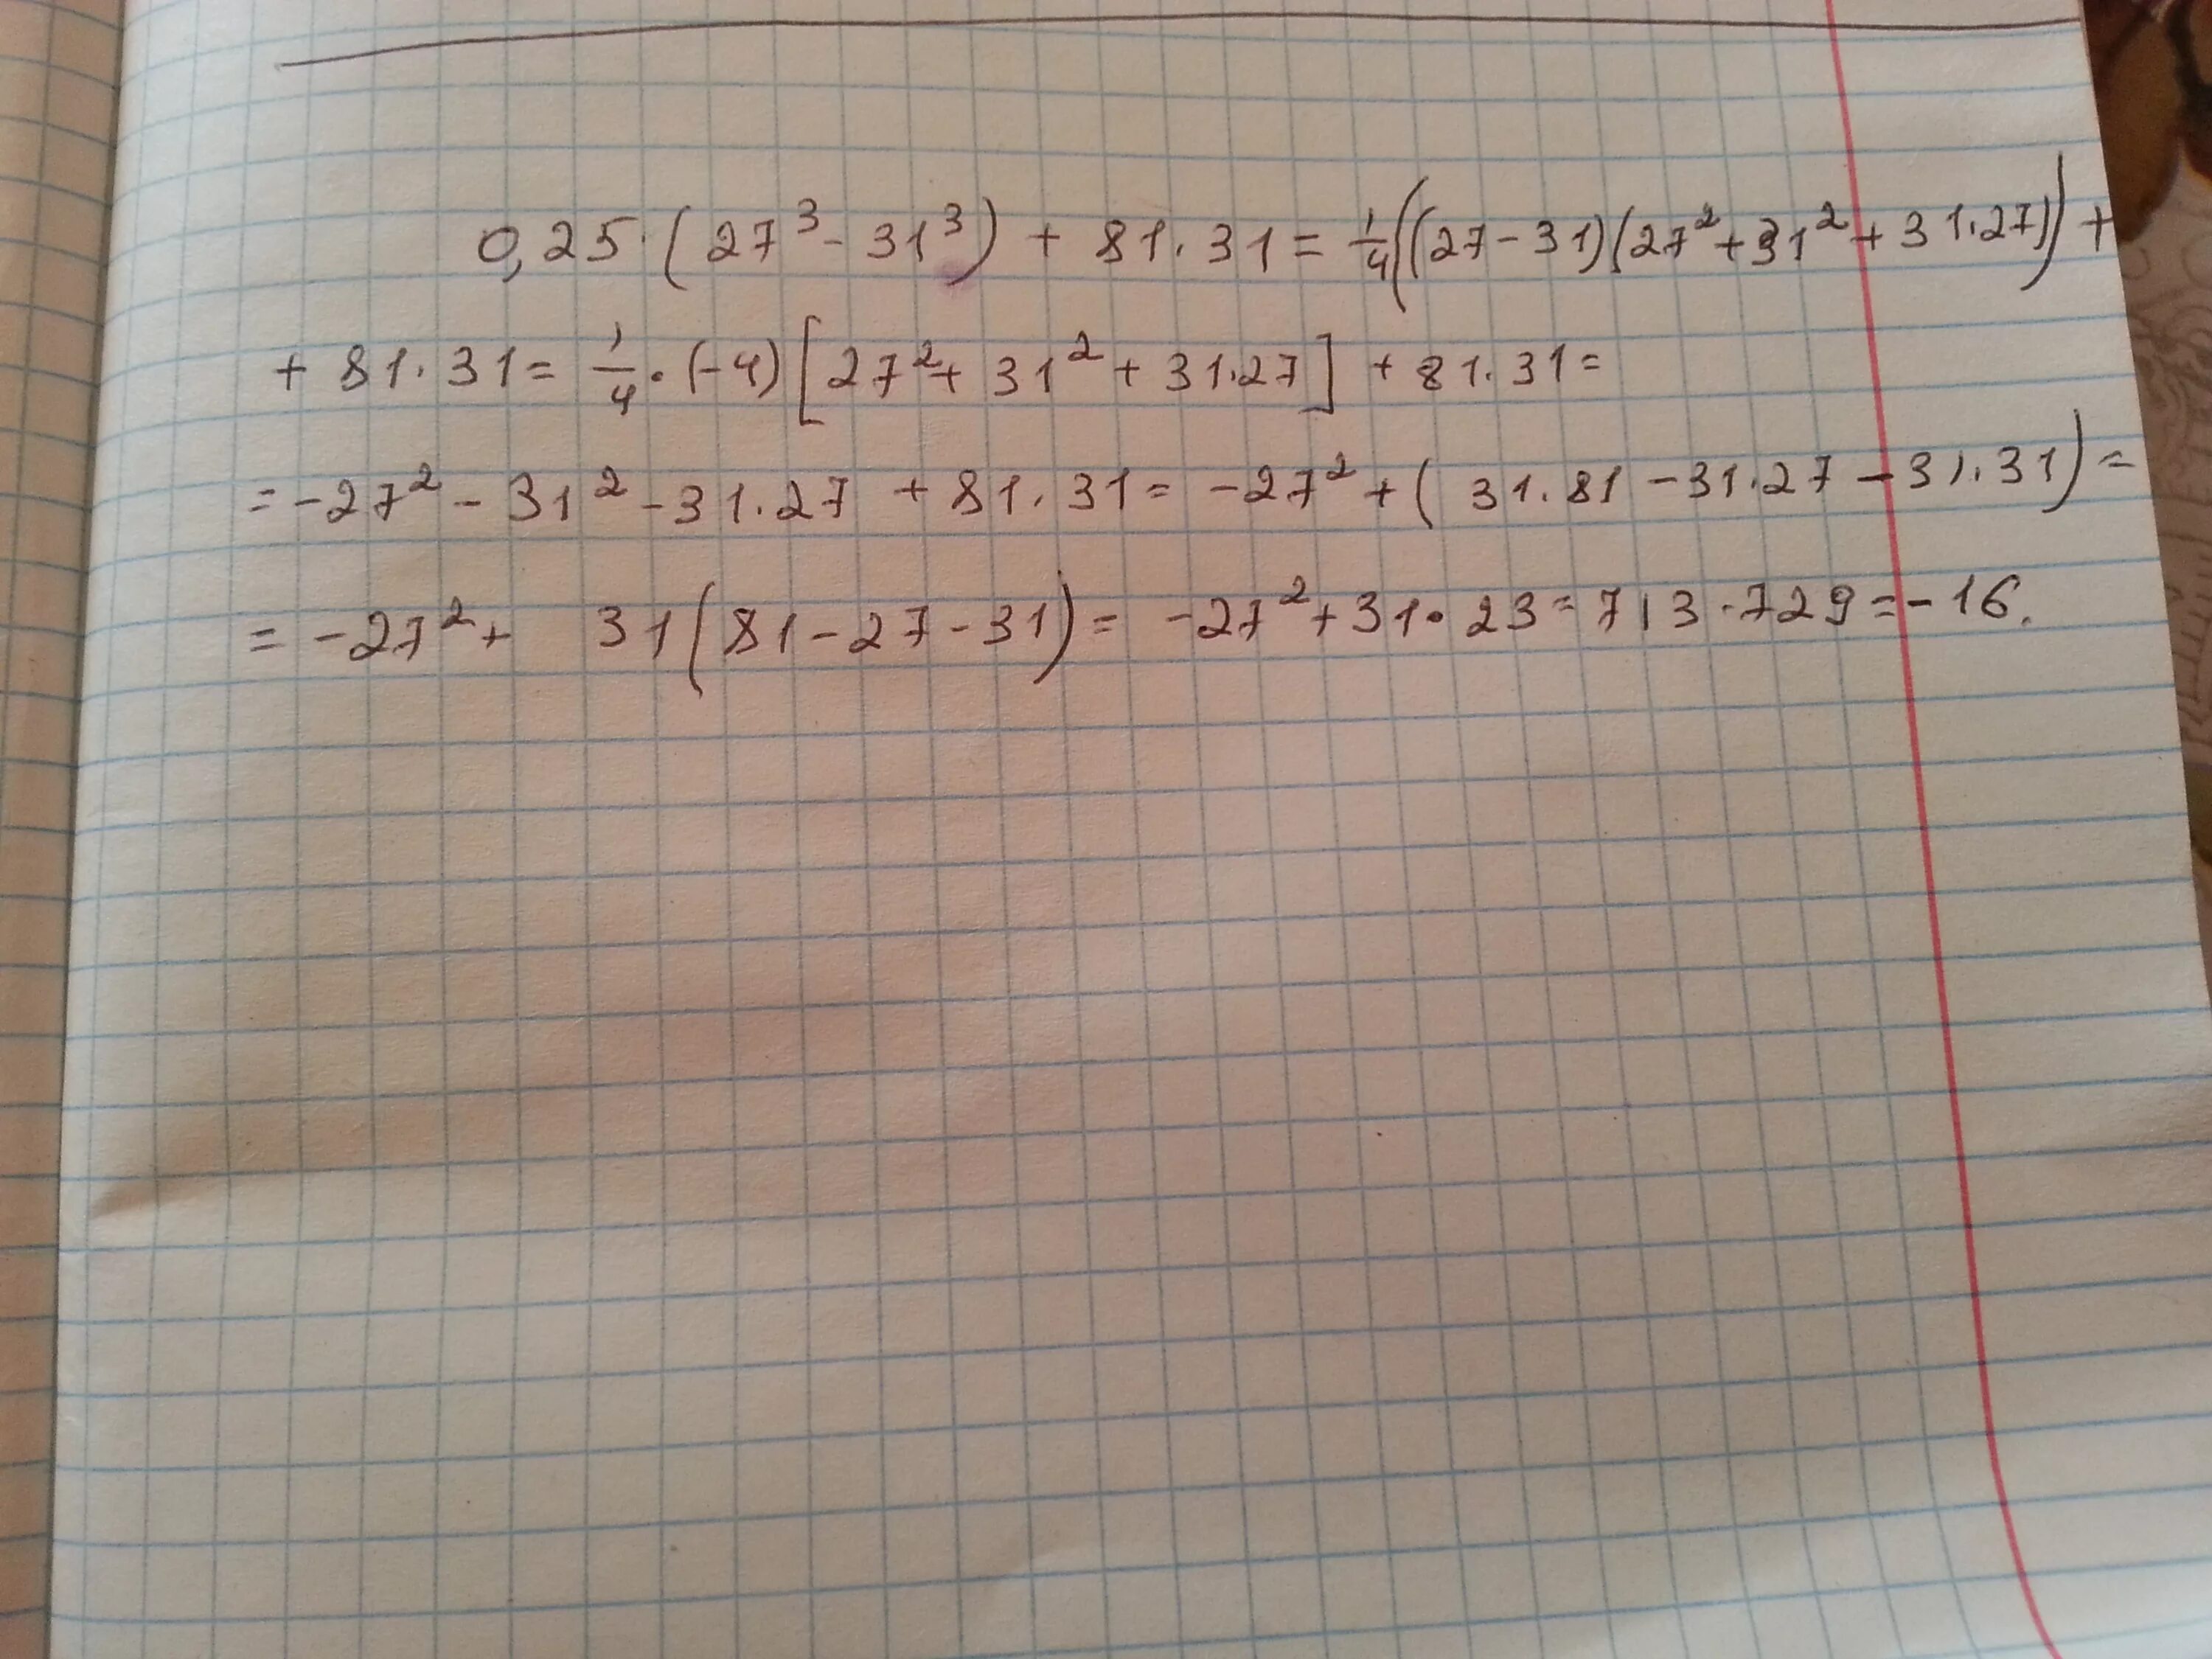 0,25·(27³-31³) + 81·31 = 1/4((27-31)(27²+31²+31·27)) +
+ 81·31 = 1/4·(-4)[27²+31²+31·27] + 81·31 =
= -27² - 31² - 31·27 + 81·31 = -27² + (31·81 - 31·27 - 31·31) =
= -27² + 31(81-27-31) = -27² + 31·23 = 713-729 = -16.